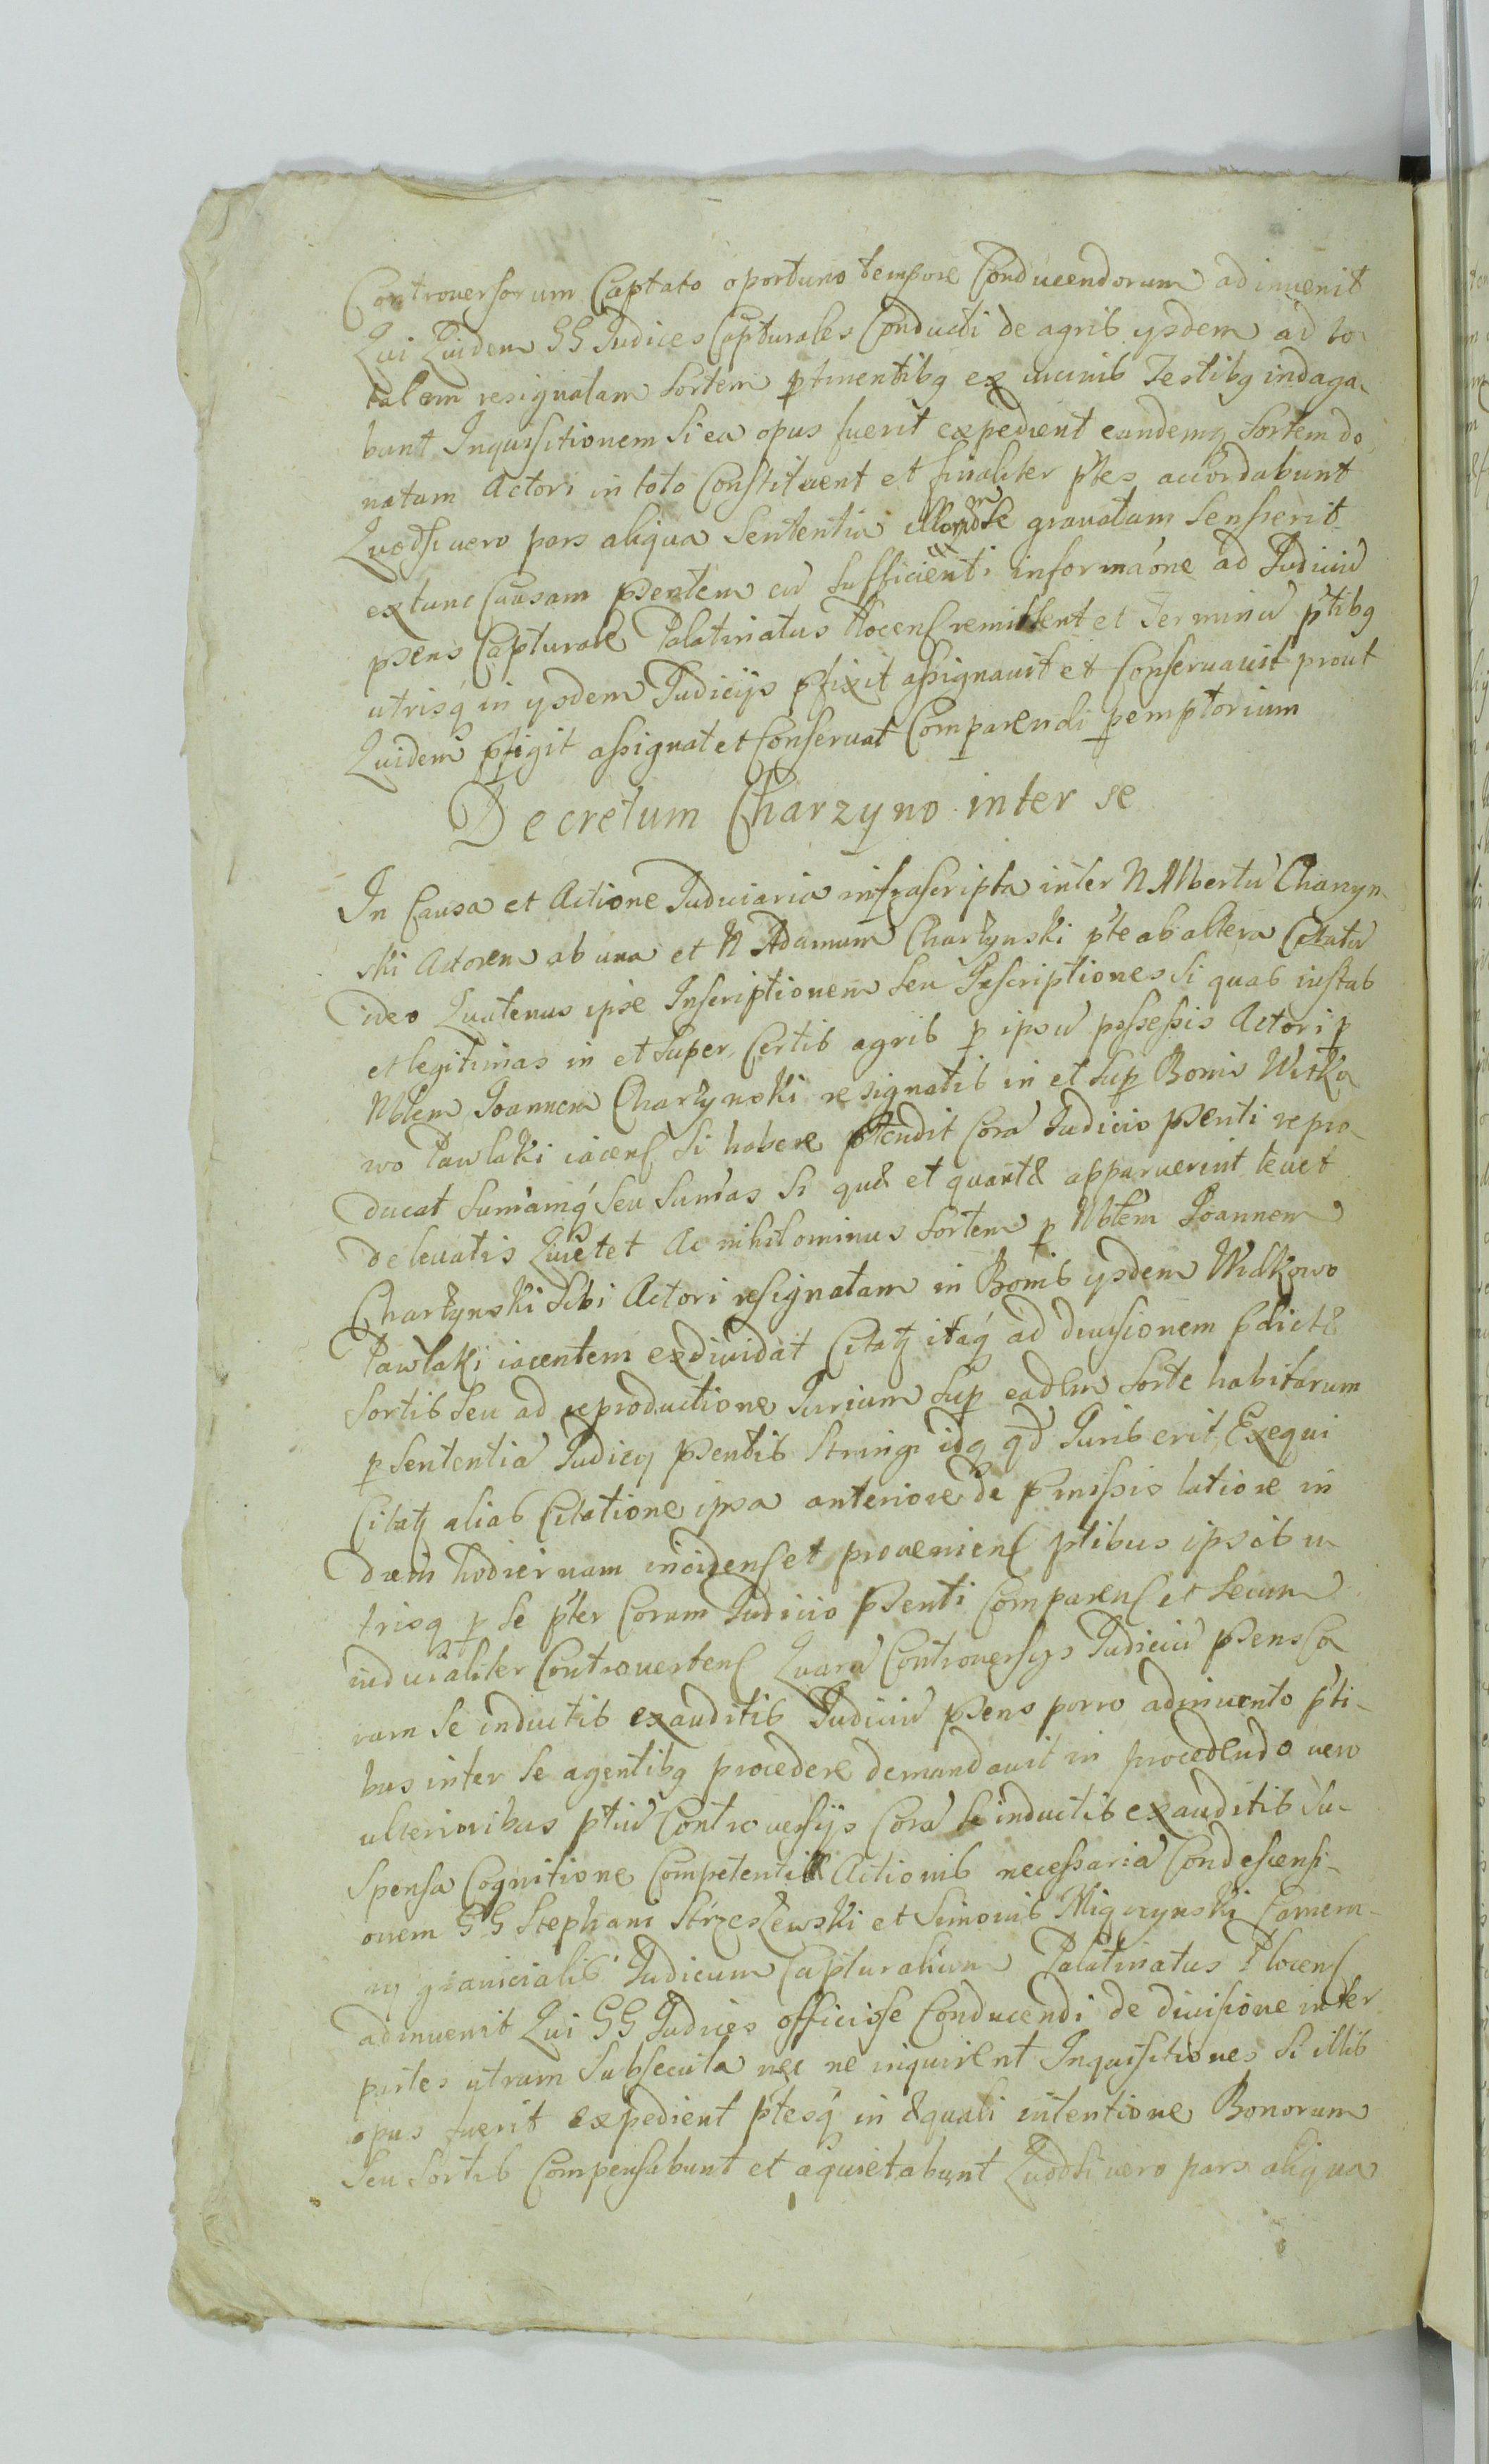 Controuersorum Captato oportuno tempore Conducendorum adinuenit
Qui Quidem GG Judices Capturales Conducti de agris ysdem ad to-
talem resignatam sortem ptinentibq ex uicinis Testibq indaga-
bunt Inquisitionem Si ea opus fuerit expedient eandemq sortem do
natam Actori in toto Constituent et finaliter ptes accordabunt
Quodsi uero pars aliqua Sententia illorum se grauatam Senserit
extunc Causam psentem cu sufficienti informaone ad Judiciu
psens Capturale Palatinatus Plocens remittent et Terminu ptibq
utrisq in ysdem Judicijs pfixit assignauit et Conseruauit prout
Quidem pfigit assignat et Conseruat Comparendi pemptorium
Decretum Charzyno inter se
In Causa et Actione Judiciaria infrascripta inter N Albertu Charzyn-
ski Actorem ab una et N Adamum Charzynski pte ab altera Citatu
ideo Quatenus ipse Inscriptionem seu Inscriptiones Si quas iustas
et legitimas in et super Certis agris p ipsu possessis Actori p
Nblem Joannem Charzynski resignatis in et sup Bonis Witko
wo Pawlaki iacens Si habere ptendit Cora Judicio psenti repro-
ducat Sumamq seu Sumas Si quae et quantae apparuerint leuet
de leuatis Quietet Ac nihilominus sortem p Nblem Joannem
Charzynski Sibi Actori resignatam in Bonis ysdem Witkowo
Pawlaki iacentem exdiuidat Citatq itaq ad diuisionem pdictae
Sortis seu ad reproductione Jurium sup eadem sorte habitarum
p sententia Judicij psentis Stringi idq qd Juris erit Exequi
Citatq alias Citatione ipsa anteriore de pmissis latiore in
diem hodiernam incidens et proueniens ptibus ipsis u-
trisq p se pter Coram Judicio psenti Comparens et secum
iudicialiter Controuertens Quaru Controuersijs Judiciu psens Co
ram se inductis exauditis Judiciu psens porro adinuento pti-
bus inter se agentibq procedere demandauit in procedendo uero
ulterioribus ptiu Controuersijs Cora se inductis exauditis Su-
spensa Cognitione Competentis Actionis necessaria Condescensi-
onem GG Stephani Strzeszewski et Simonis Migczynski Camera-
rij granicialis Judicum Capturalium Palatinatus Plocens
adinuenit Qui GG Judices officiose Conducendi de diuisione inter
partes utrum subsecuta nec ne inquirent Inquisitiones Si illis
opus fuerit expedient ptesq in aequali intentione Bonorum
seu sortis Compensabunt et aquietabunt Quodsi uero pars aliqua